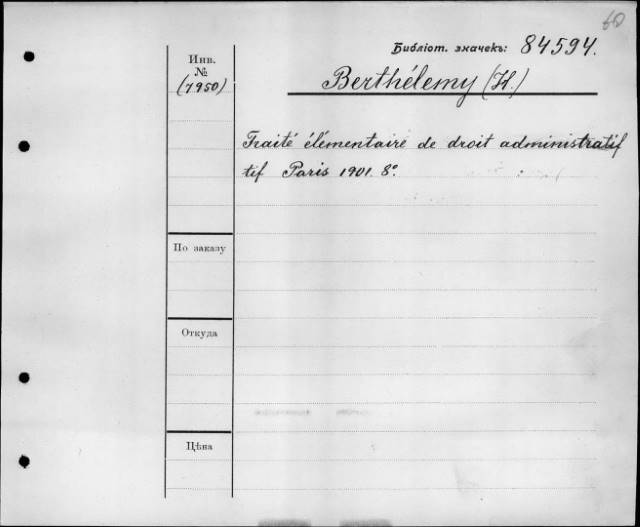 60
Библіот. значекъ: 84594.
Инв.
№
(7950)
Berthélemy (H.)
Traité élémentaire de droit administratif
tif Paris 1901. 8°.
По заказу
Откуда
Цѣна